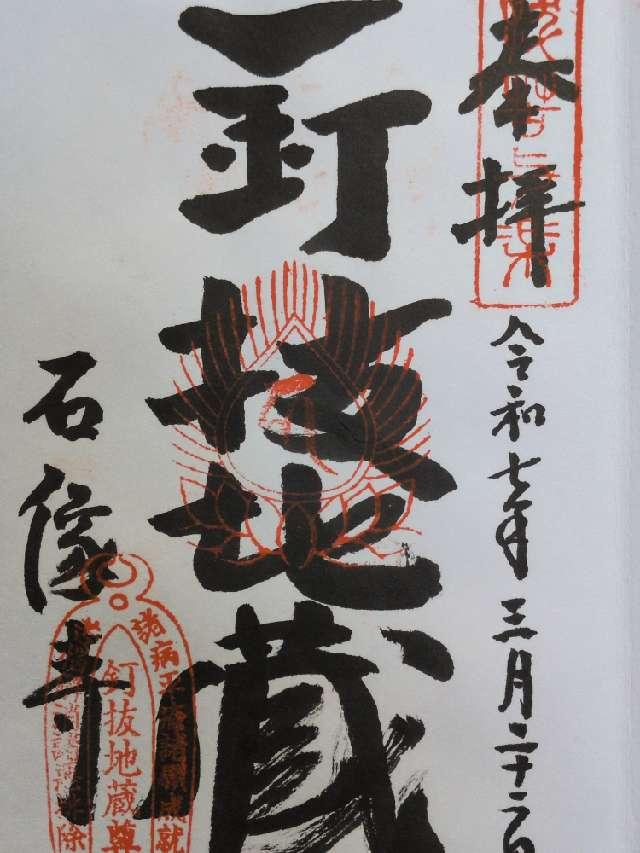 奉拝
令和七年三月二十二日
釘抜地蔵
石像寺
諸病平癒諸願成就
釘抜地蔵尊